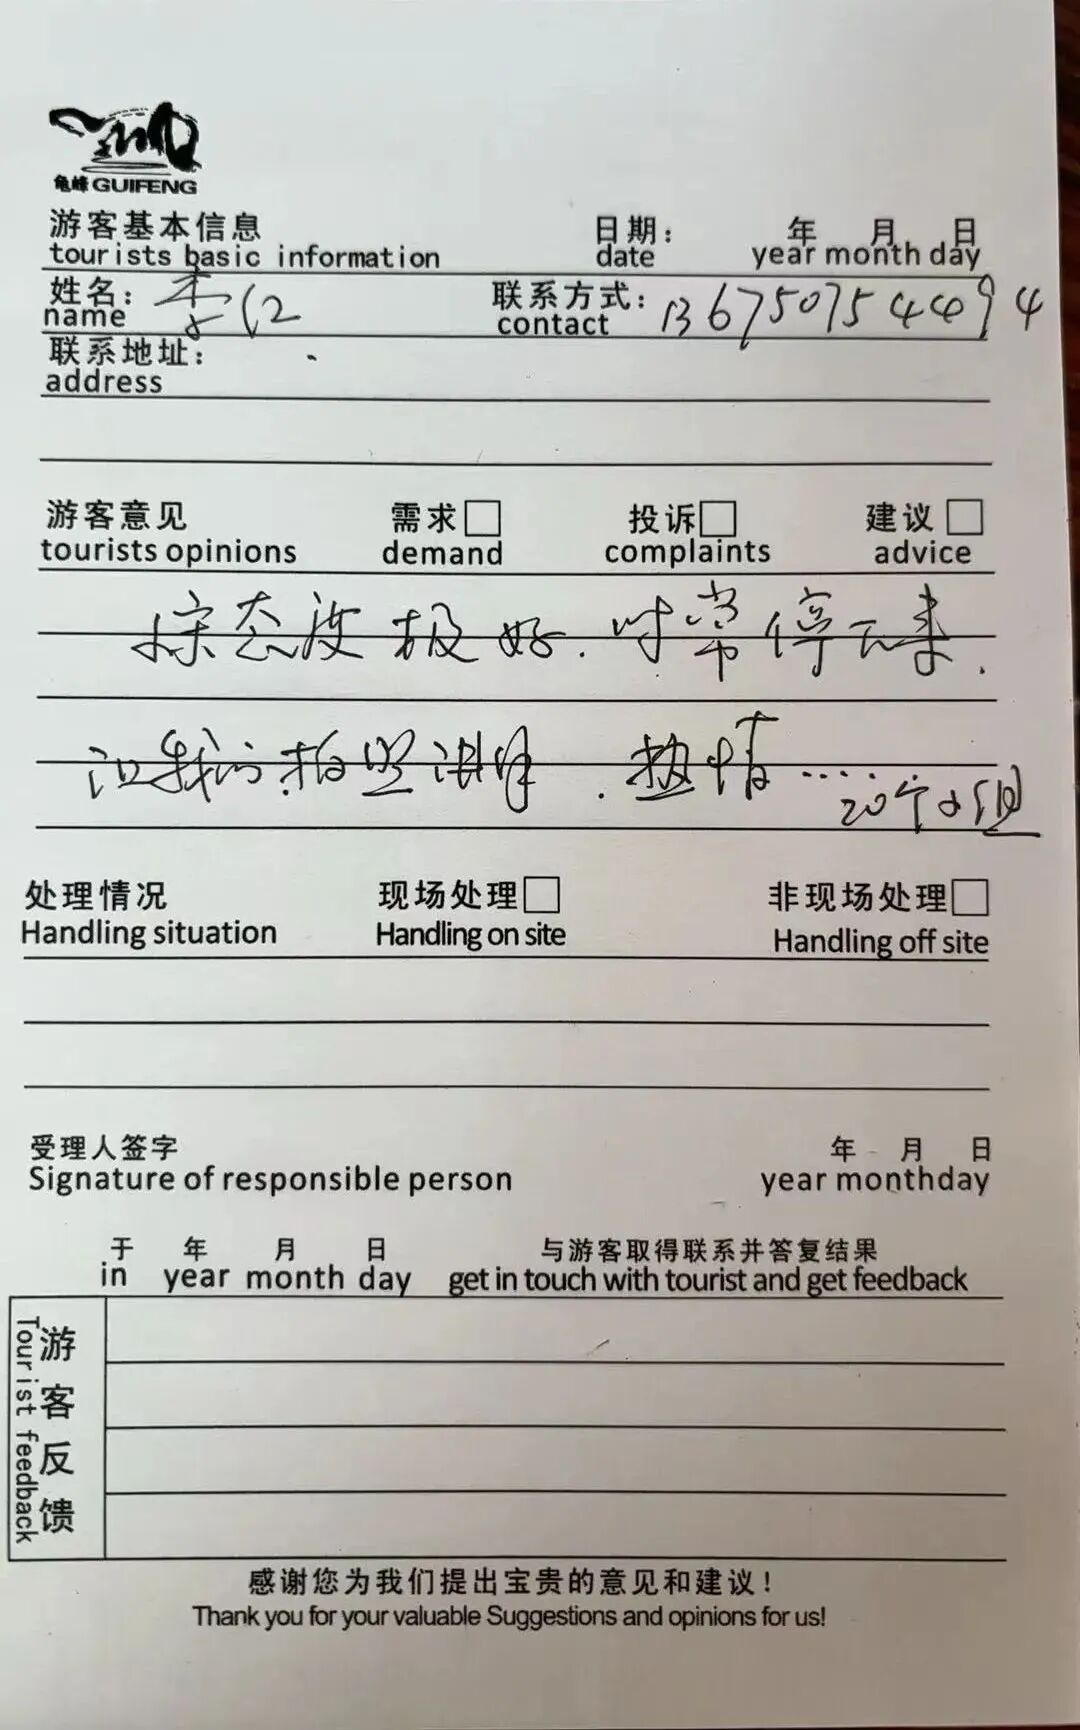 龟峰GUIFENG
游客基本信息 日期: 年 月 日
tourists basic information date year month day
姓名: 李 联系方式: 136750754494
name contact
联系地址:
address
游客意见 需求 投诉 建议
tourists opinions demand complaints advice
态度极好.时常停下来.
让我们拍照讲解.热情......
20个小组
处理情况 现场处理 非现场处理
Handling situation Handling on site Handling off site
受理人签字 年 月 日
Signature of responsible person year monthday
于 年 月 日 与游客取得联系并答复结果
in year month day get in touch with tourist and get feedback
游客反馈
Tourist feedback
感谢您为我们提出宝贵的意见和建议!
Thank you for your valuable Suggestions and opinions for us!